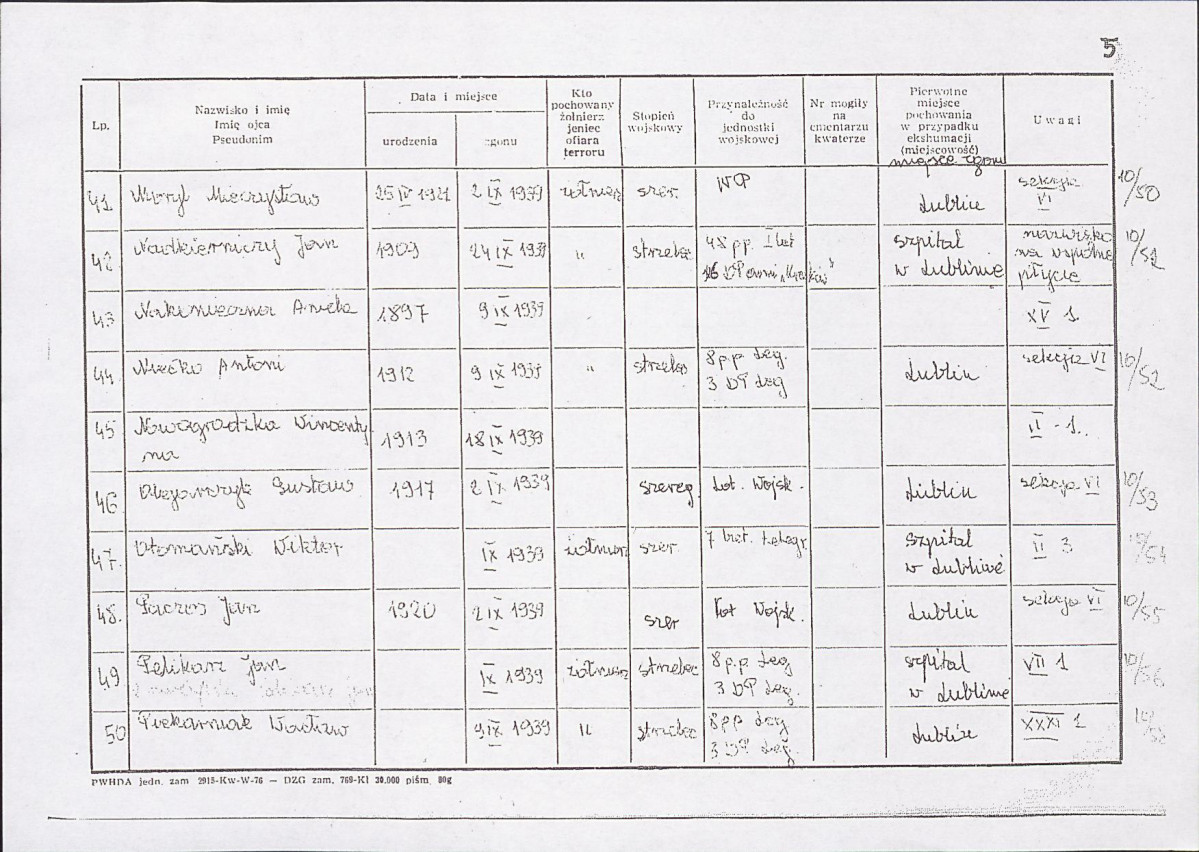 5
Lp.
Nazwisko i imię
Imię ojca
Pseudonim
Data i miejsce
urodzenia
zgonu
Kto
pochowany
żołnierz
jeniec
ofiara
terroru
Stopień
wojskowy
Przynależność
do
jednostki
wojskowej
Nr mogiły
na
cmentarzu
kwaterze
Pierwotne
miejsce
pochowania
w przypadku
ekshumacji
(miejscowość)
miejsce zgonu
Uwagi
41. Muryl Mieczysław 25 IV 1921 2 IX 1939 żołnierz szer. WP Lublin sekcja VI 10/50
42. Nadkierniczy Jan 1909 24 IX 1939 " strzelec 48 pp. I bat
szpital w Lublinie nazwisko na wspólnej płycie 10/51
43 Aniela 1897 9 IX 1939 XV 1
44. Niećko Antoni 1912 9 IX 1939 " strzelec 8 p.p. Leg. 3 DP Leg Lublin sekcja VI 10/52
45 Wincentyna 1913 18 IX 1939 II - 1.
46 Gustaw 1917 2 IX 1939 szereg. Lot. Wojsk. Lublin sekcja VI 10/53
47. Otomański Wiktor IX 1939 żołnierz szer. 7 bat. Telegr szpital w Lublinie II 3 10/54
48. Paczos Jan 1920 2 IX 1939 szer Lot Wojsk. Lublin sekcja VI 10/55
49 Pelikarz Jan IX 1939 żołnierz strzelec 8 p.p Leg 3 DP Leg. szpital w Lublinie VII 1 10/56
50 Piekarniak Wacław 9 IX 1939 " strzelec 8 pp Leg 3 DP Leg. Lublin XXXI 1
PWHDA jedn. zam 2915-Kw-W-76 — DZG zam. 769-Kl 30.000 piśm. 80g